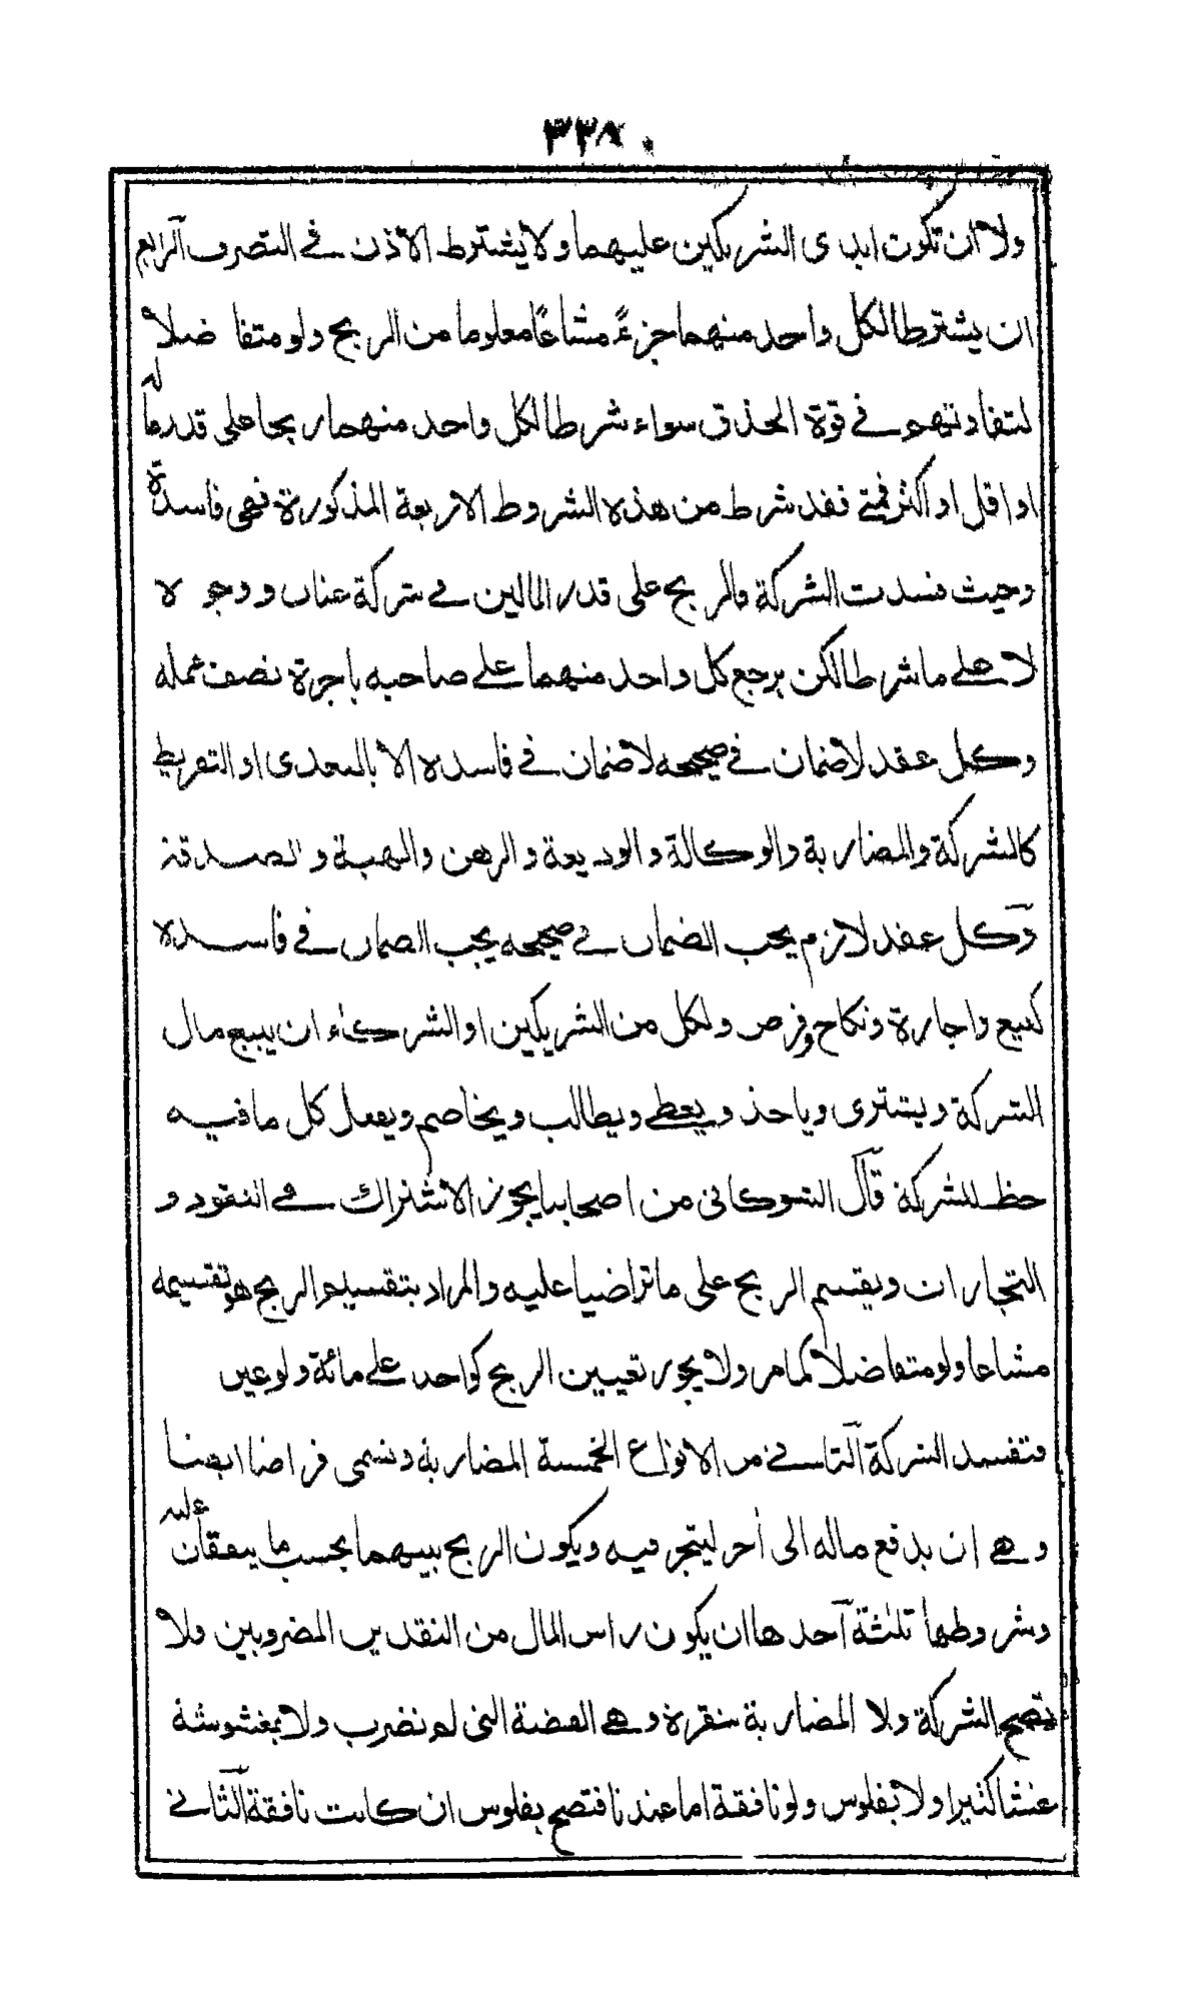 ٣٣٨
ولا ان تكون ايدى الشريكين عليهما ولا يشترط الاذن فى التصرف الرابع
ان يشترطا لكل واحد منهما جزءً مشاعًا معلوما من الربح ولو متفا ضلا
لتفاوتهم فى قوة الحذق سواء شرطا لكل واحد منهما ربحا على قدر ماله
او اقل او اكثر فمتى فقد شرط من هذه الشروط الاربعة المذكورة فهى فاسدة
وحيث فسدت الشركة فالربح على قدر المالين فى شركة عنان ووجوه
لا على ما شرطا لكن يرجع كل واحد منهما على صاحبه باجرة نصف عمله
وكل عقد لاضمان فى صحيحه لاضمان فى فاسده الا بالتعدى او التفريط
كالشركة والمضاربة والوكالة والوديعة والرهن والهبة والصدقة
وكل عقد لازم يجب الضمان فى صحيحه يجب الضمان فى فاسده
كبيع واجارة ونكاح وقرض ولكل من الشريكين او الشركاء ان يبيع مال
الشركة ويشترى وياخذ ويعطى ويطالب ويخاصم ويفعل كل ما فيه
حظ للشركة قال الشوكانى من اصحابنا يجوز الاشتراك فى النقود و
التجارات ويقتسم الربح على ما تراضيا عليه والمراد بتقسيم الربح هو تقسيمه
مشاعا ولو متفاضلا كما مر ولا يجوز تعيين الربح كواحد على مائة ولو عين
فتفسد الشركة الثانى من الانواع الخمسة المضاربة وتسمى قراضا ايضا
وهى ان يدفع ماله الى اخر ليتجر فيه ويكون الربح بينهما بحسب ما يتفقان عليه
وشروطها ثلثة احدها ان يكون راس المال من النقدين المضروبين ولا
تصح الشركة ولا المضاربة بنقرة وهى الفضة التى لم تضرب ولا بمغشوشة
غشا كثيرا ولا بفلوس ولو نافقة اما عندنا فتصح بفلوس ان كانت نافقة الثانى